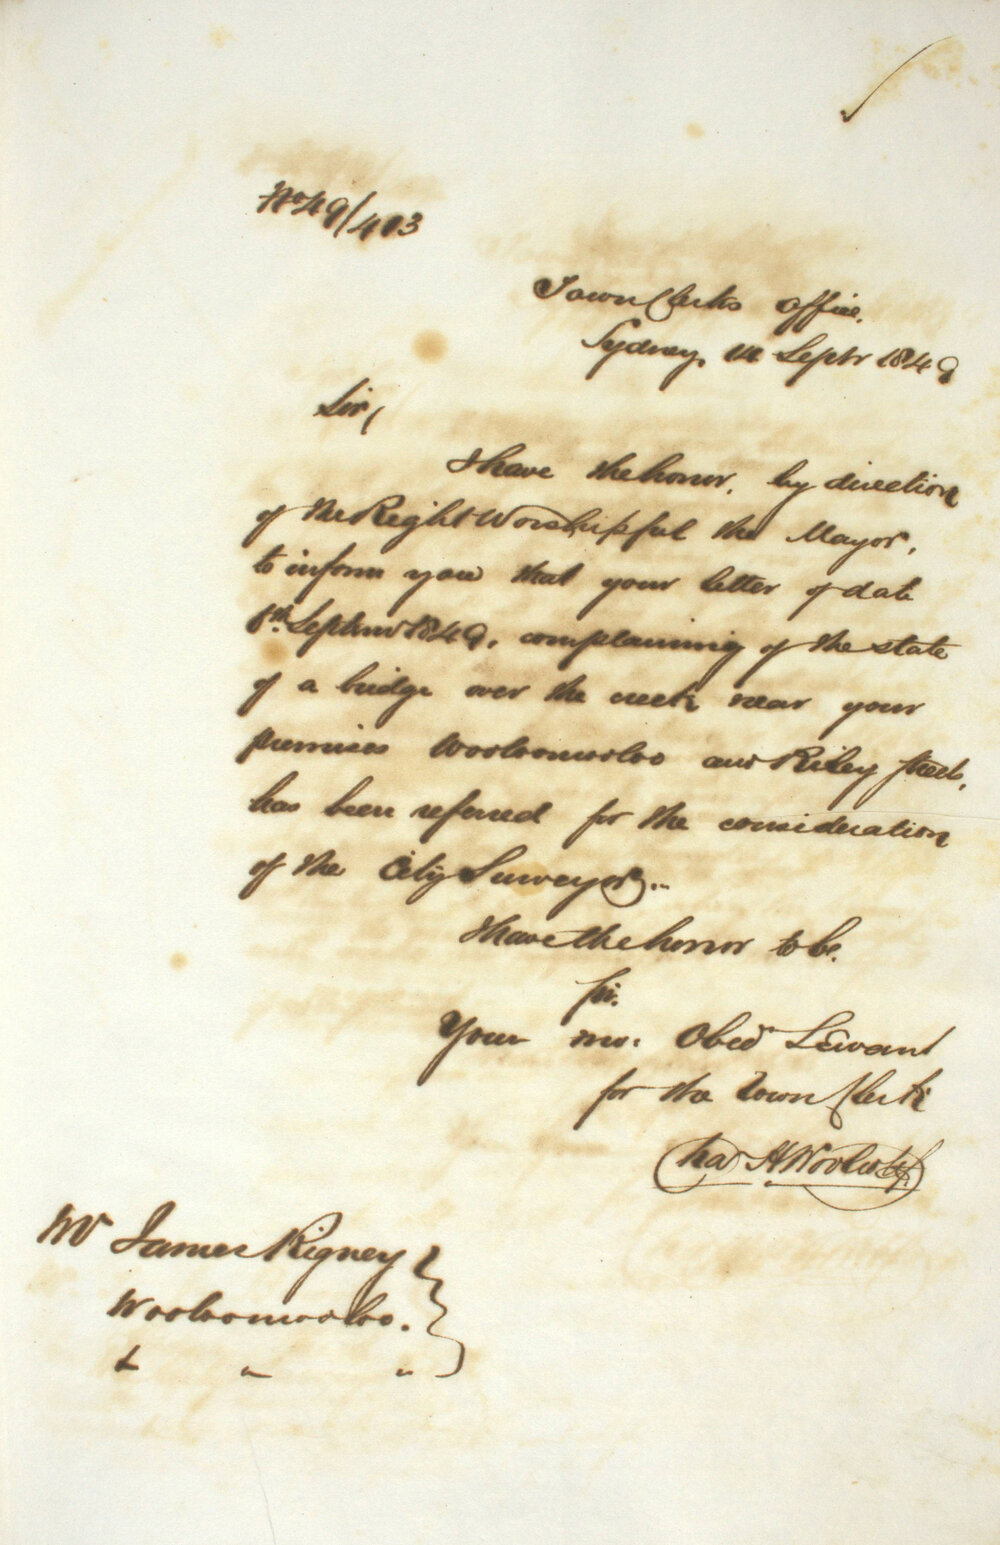 No 49/413
Town Clerks Office.
Sydney, 14 Septr 1849
Sir,
I have the honor, by direction
of the Right Worshipful the Mayor,
to inform you that your letter of date
8th Septemr 1849, complaining of the state
of a bridge over the creek near your
premises Wooloomooloo and Riley Street,
has been referred for the consideration
of the City Surveyor.
I have the honor to be.
Sir.
Your mo. Obedt Servant
for the Town Clerk
Chas H Woolcott
Mr James Rigney
Wooloomooloo.